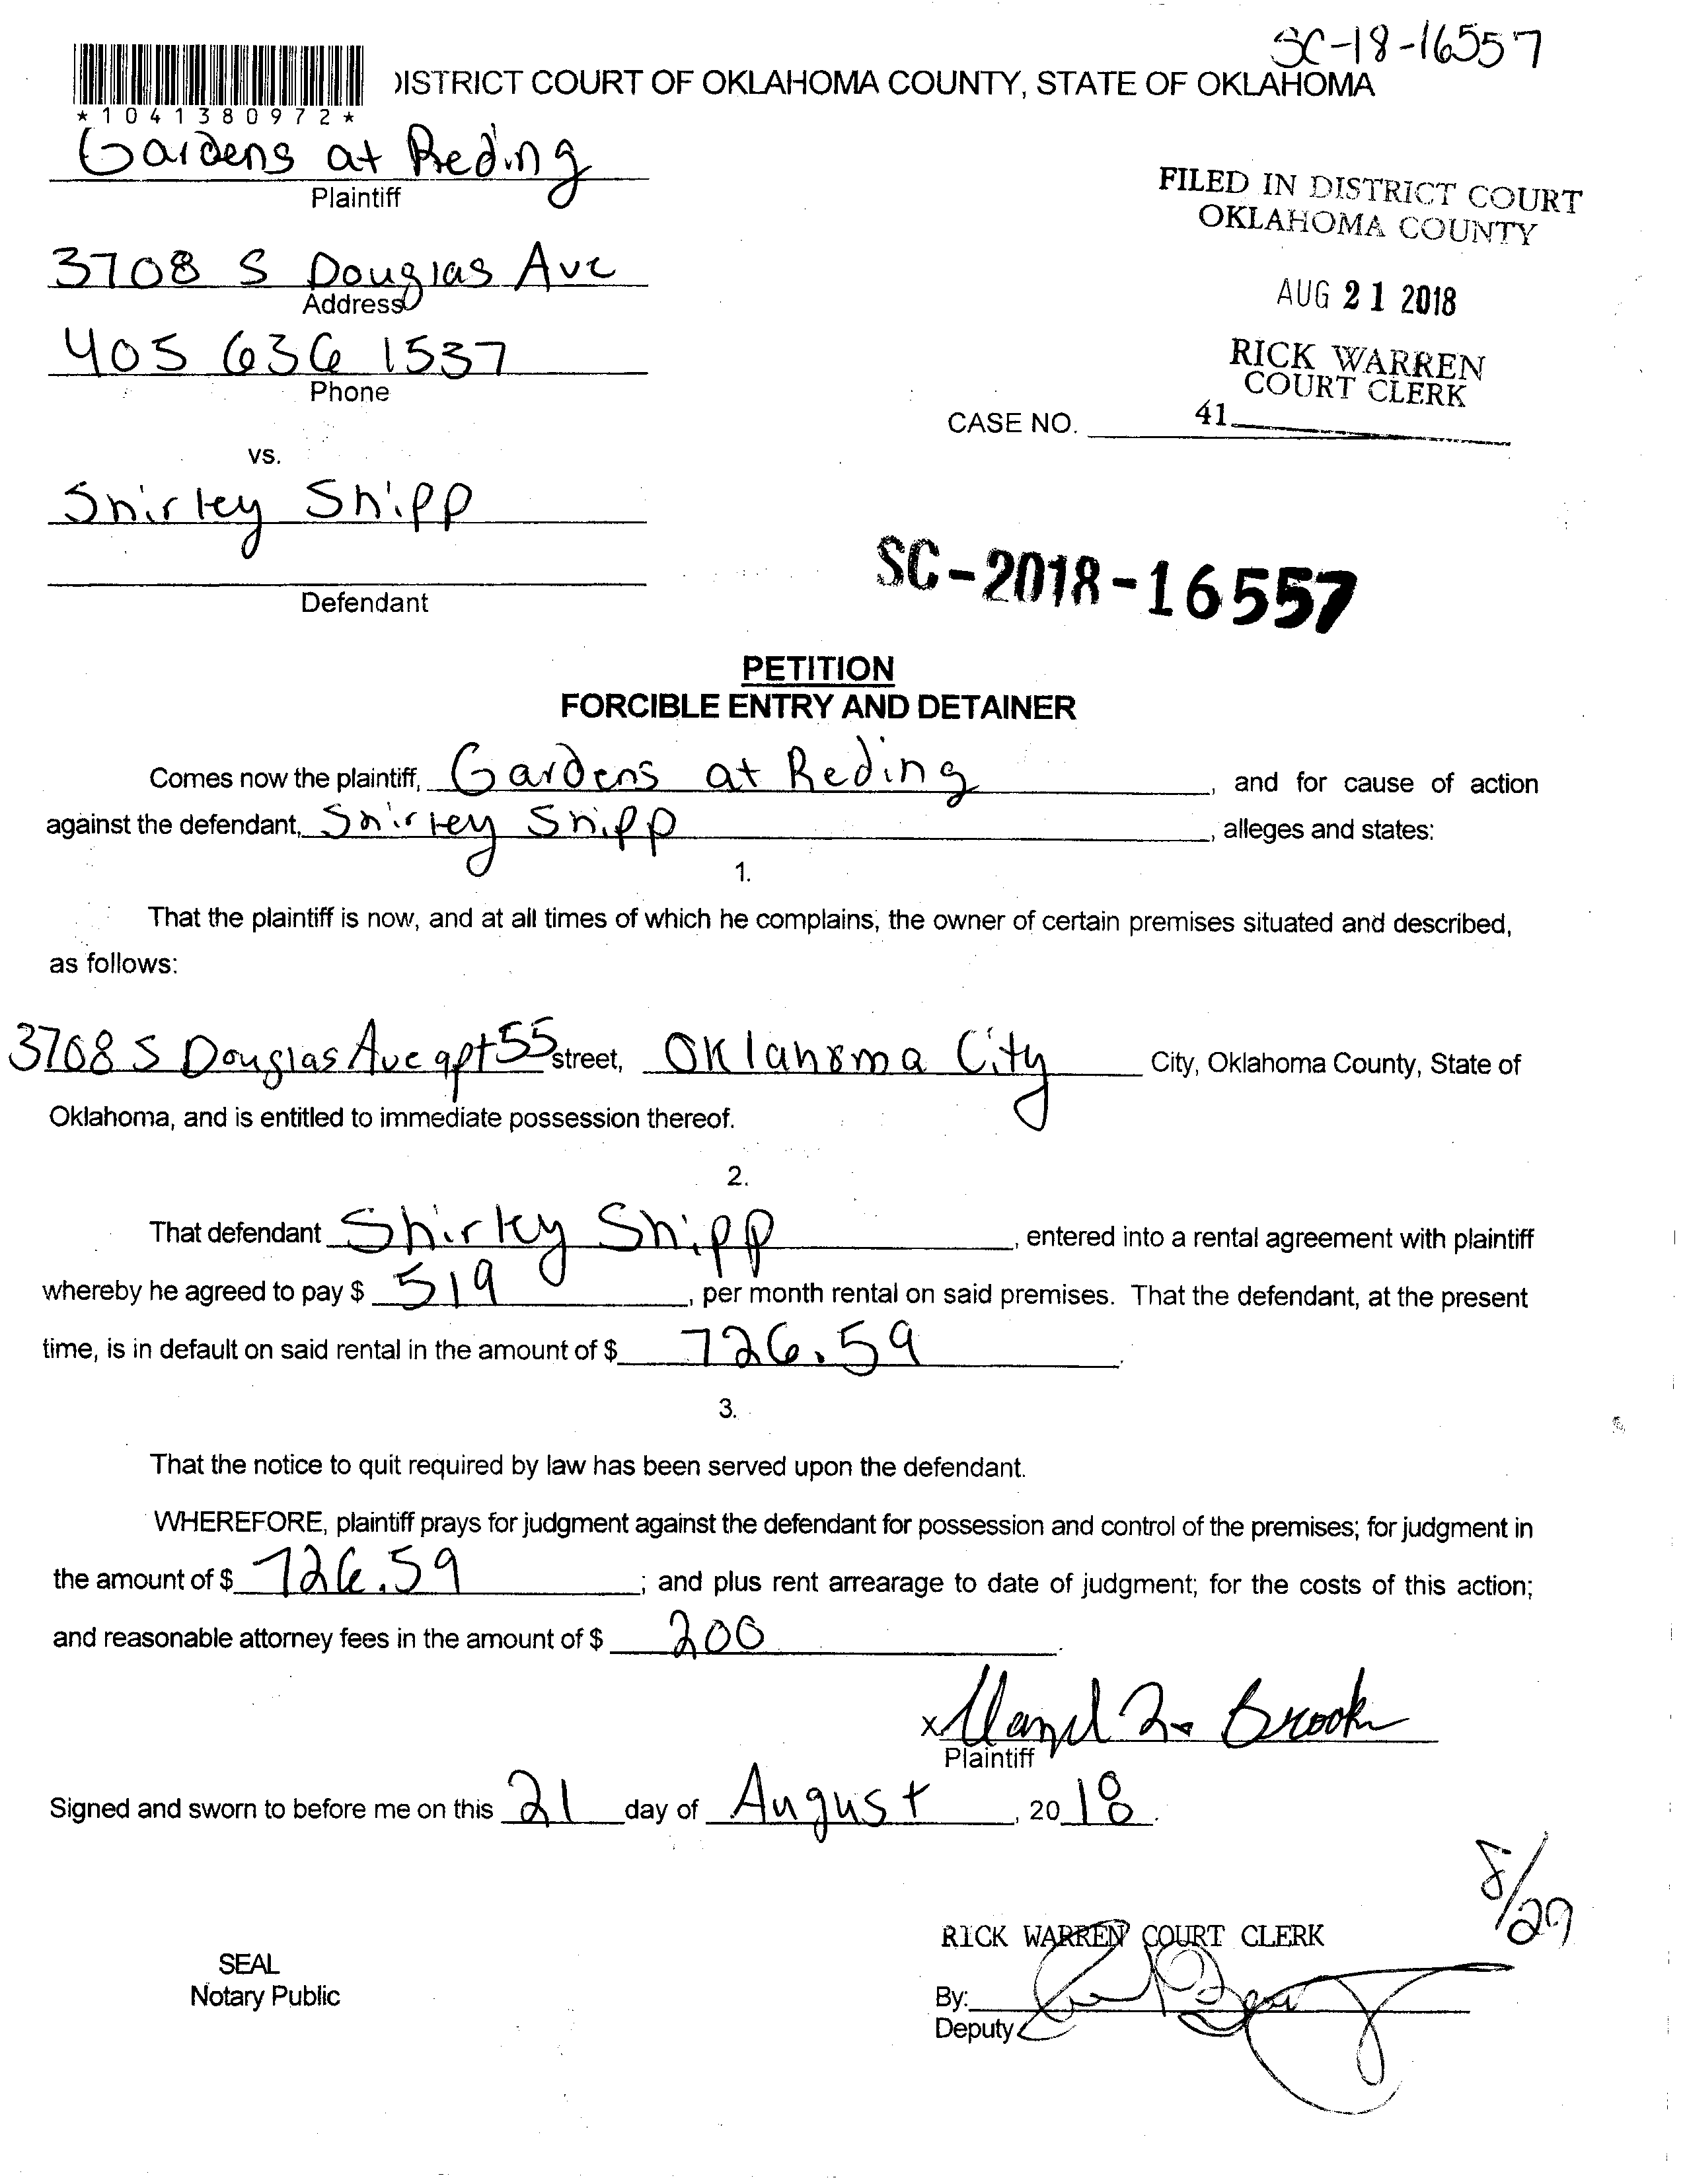 SC-18-16557
*1041380972*
DISTRICT COURT OF OKLAHOMA COUNTY, STATE OF OKLAHOMA
Gardens at Reding
Plaintiff
FILED IN DISTRICT COURT
OKLAHOMA COUNTY
3708 S Douglas Ave
Address
AUG 21 2018
405 636 1537
Phone
RICK WARREN
COURT CLERK
CASE NO. 41
vs.
Shirley Shipp
SC-2018-16557
Defendant
PETITION
FORCIBLE ENTRY AND DETAINER
Comes now the plaintiff, Gardens at Reding, and for cause of action
against the defendant, Shirley Shipp, alleges and states:
1.
That the plaintiff is now, and at all times of which he complains, the owner of certain premises situated and described,
as follows:
3708 S Douglas Ave apt 55 street, Oklahoma City City, Oklahoma County, State of
Oklahoma, and is entitled to immediate possession thereof.
2.
That defendant Shirley Shipp, entered into a rental agreement with plaintiff
whereby he agreed to pay $ 519, per month rental on said premises. That the defendant, at the present
time, is in default on said rental in the amount of $ 726.59.
3.
That the notice to quit required by law has been served upon the defendant.
WHEREFORE, plaintiff prays for judgment against the defendant for possession and control of the premises; for judgment in
the amount of $ 726.59; and plus rent arrearage to date of judgment; for the costs of this action;
and reasonable attorney fees in the amount of $ 200.
x Brook
Plaintiff
Signed and sworn to before me on this 21 day of August, 2018.
8/29
RICK WARREN COURT CLERK
SEAL
Notary Public
By:
Deputy